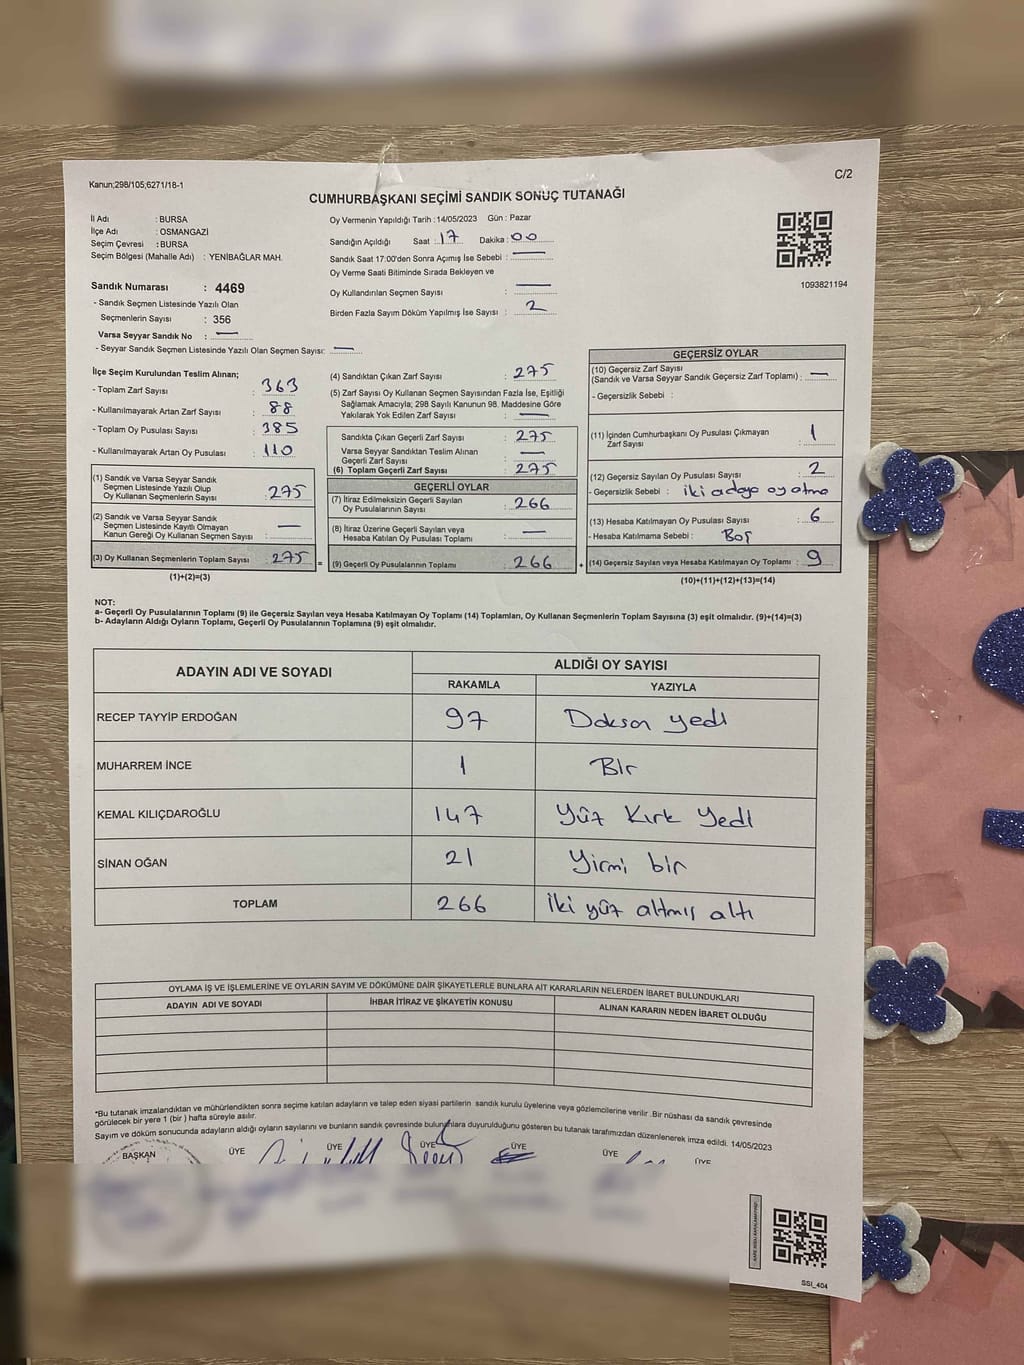 Kanun;298/105;6271/18-1
C/2
CUMHURBAŞKANI SEÇİMİ SANDIK SONUÇ TUTANAĞI
İl Adı : BURSA
İlçe Adı : OSMANGAZİ
Seçim Çevresi : BURSA
Seçim Bölgesi (Mahalle Adı) : YENİBAĞLAR MAH.
Oy Vermenin Yapıldığı Tarih :14/05/2023 Gün : Pazar
Sandığın Açıldığı Saat : 17 Dakika : 00
Sandık Saat 17:00'den Sonra Açımış İse Sebebi : —
Oy Verme Saati Bitiminde Sırada Bekleyen ve
Oy Kullandırılan Seçmen Sayısı : —
Birden Fazla Sayım Döküm Yapılmış İse Sayısı : 2
1093821194
Sandık Numarası : 4469
- Sandık Seçmen Listesinde Yazılı Olan
Seçmenlerin Sayısı : 356
Varsa Seyyar Sandık No : —
- Seyyar Sandık Seçmen Listesinde Yazılı Olan Seçmen Sayısı: —
İlçe Seçim Kurulundan Teslim Alınan;
- Toplam Zarf Sayısı : 363
- Kullanılmayarak Artan Zarf Sayısı : 88
- Toplam Oy Pusulası Sayısı : 385
- Kullanılmayarak Artan Oy Pusulası : 110
(1) Sandık ve Varsa Seyyar Sandık
Seçmen Listesinde Yazılı Olup
Oy Kullanan Seçmenlerin Sayısı : 275
(2) Sandık ve Varsa Seyyar Sandık
Seçmen Listesinde Kayıtlı Olmayan
Kanun Gereği Oy Kullanan Seçmen Sayısı : —
(3) Oy Kullanan Seçmenlerin Toplam Sayısı : 275
(1)+(2)=(3)
(4) Sandıktan Çıkan Zarf Sayısı : 275
(5) Zarf Sayısı Oy Kullanan Seçmen Sayısından Fazla İse, Eşitliği
Sağlamak Amacıyla; 298 Sayılı Kanunun 98. Maddesine Göre
Yakılarak Yok Edilen Zarf Sayısı : —
Sandıkta Çıkan Geçerli Zarf Sayısı : 275
Varsa Seyyar Sandıktan Teslim Alınan
Geçerli Zarf Sayısı : —
(6) Toplam Geçerli Zarf Sayısı : 275
GEÇERLİ OYLAR
(7) İtiraz Edilmeksizin Geçerli Sayılan
Oy Pusulalarının Sayısı : 266
(8) İtiraz Üzerine Geçerli Sayılan veya
Hesaba Katılan Oy Pusulası Toplamı : —
= (9) Geçerli Oy Pusulalarının Toplamı : 266 +
GEÇERSİZ OYLAR
(10) Geçersiz Zarf Sayısı
(Sandık ve Varsa Seyyar Sandık Geçersiz Zarf Toplamı) : —
- Geçersizlik Sebebi :
(11) İçinden Cumhurbaşkanı Oy Pusulası Çıkmayan
Zarf Sayısı : 1
(12) Geçersiz Sayılan Oy Pusulası Sayısı : 2
- Geçersizlik Sebebi : iki adaya oy atma
(13) Hesaba Katılmayan Oy Pusulası Sayısı : 6
- Hesaba Katılmama Sebebi : Boş
(14) Geçersiz Sayılan veya Hesaba Katılmayan Oy Toplamı : 9
(10)+(11)+(12)+(13)=(14)
NOT:
a- Geçerli Oy Pusulalarının Toplamı (9) ile Geçersiz Sayılan veya Hesaba Katılmayan Oy Toplamı (14) Toplamları, Oy Kullanan Seçmenlerin Toplam Sayısına (3) eşit olmalıdır. (9)+(14)=(3)
b- Adayların Aldığı Oyların Toplamı, Geçerli Oy Pusulalarının Toplamına (9) eşit olmalıdır.
ADAYIN ADI VE SOYADI ALDIĞI OY SAYISI
RAKAMLA YAZIYLA
RECEP TAYYİP ERDOĞAN 97 Doksan yedi
MUHARREM İNCE 1 Bir
KEMAL KILIÇDAROĞLU 147 Yüz Kırk Yedi
SİNAN OĞAN 21 Yirmi bir
TOPLAM 266 İki yüz altmış altı
OYLAMA İŞ VE İŞLEMLERİNE VE OYLARIN SAYIM VE DÖKÜMÜNE DAİR ŞİKAYETLERLE BUNLARA AİT KARARLARIN NELERDEN İBARET BULUNDUKLARI
ADAYIN ADI VE SOYADI İHBAR İTİRAZ VE ŞİKAYETİN KONUSU ALINAN KARARIN NEDEN İBARET OLDUĞU
*Bu tutanak imzalandıktan ve mühürlendikten sonra seçime katılan adayların ve talep eden siyasi partilerin sandık kurulu üyelerine veya gözlemcilerine verilir .Bir nüshası da sandık çevresinde
görülecek bir yere 1 (bir ) hafta süreyle asılır.
Sayım ve döküm sonucunda adayların aldığı oyların sayılarını ve bunların sandık çevresinde bulunanlara duyurulduğunu gösteren bu tutanak tarafımızdan düzenlenerek imza edildi. 14/05/2023
BAŞKAN ÜYE ÜYE ÜYE ÜYE ÜYE ÜYE
SSİ_404